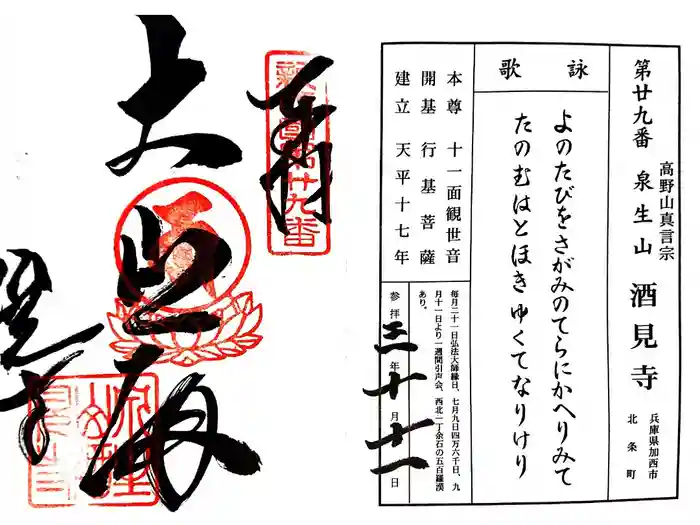 第廿九番 泉生山 酒見寺
高野山真言宗
兵庫県加西市
北条町
詠歌
よのたびをさがみのてらにかへりみて
たのむはとほきゆくてなりけり
本尊 十一面観世音
開基 行基菩薩
建立 天平十七年
毎月二十一日弘法大師縁日、七月九日四万六千日、九
月十一日より一週間引声会、西北一丁余石の五百羅漢
あり。
参拝 年十月十一日
奉拝
廿九番
大悲殿
見寺